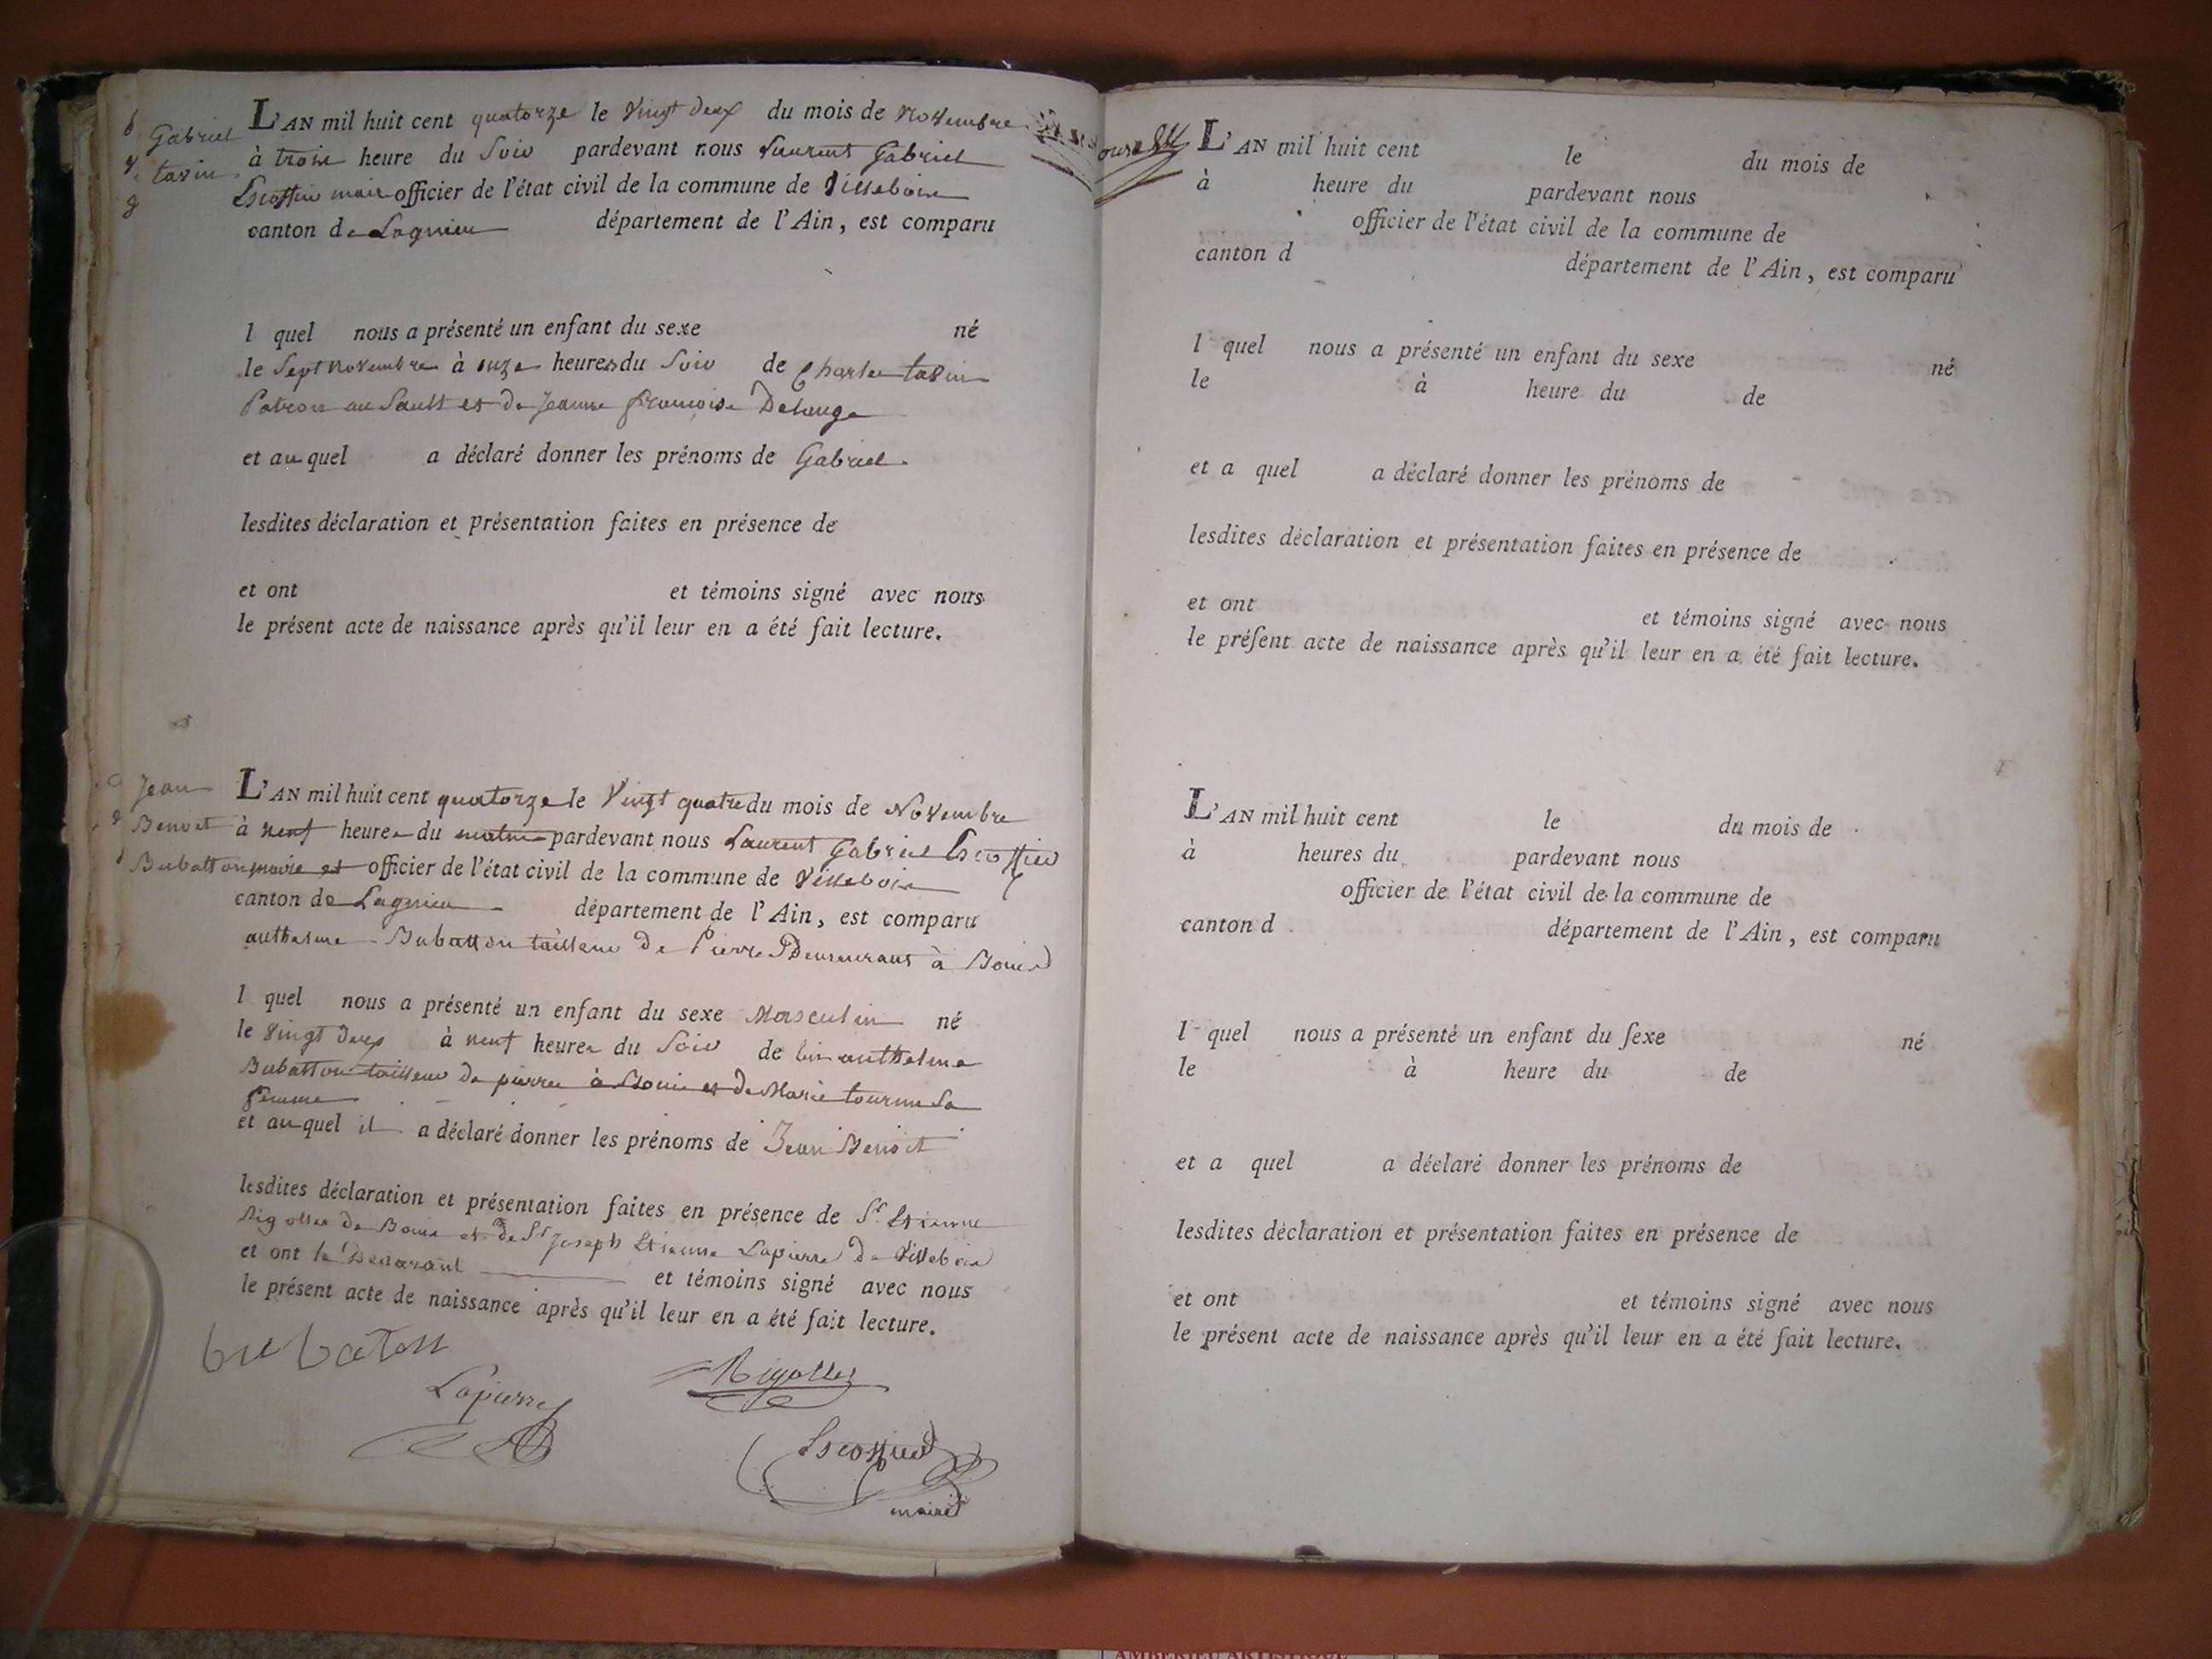 Gabriel
tavin
L'AN mil huit cent quatorze le vingt deux du mois de novembre
à trois heure du Soir pardevant nous Laurent Gabriel
Escoffier maire officier de l'état civil de la commune de Villebois
canton de Lagnieu département de l'Ain, est comparu
l quel nous a présenté un enfant du sexe né
le Sept novembre à onze heures du Soir de Charles tavin
Patron au Sault et de Jeanne françoise
et au quel a déclaré donner les prénoms de Gabriel
lesdites déclaration et présentation faites en présence de
et ont et témoins signé avec nous
le présent acte de naissance après qu'il leur en a été fait lecture.
Jean
Benoit
Bubatton
L'AN mil huit cent quatorze le Vingt quatre du mois de Novembre
à neuf heures du matin pardevant nous Laurent Gabriel Escoffier
maire et officier de l'état civil de la commune de Villebois
canton de Lagnieu département de l'Ain, est comparu
anthelme Bubatton tailleur de Pierre Demeurant à Bouis
l quel nous a présenté un enfant du sexe Masculin né
le vingt deux à neuf heures du Soir de lui anthelme
Bubatton tailleur de pierre à Bouis et de Marie tournu Sa
femme
et au quel il a déclaré donner les prénoms de Jean Benoit
lesdites déclaration et présentation faites en présence de Sr. Etienne
Rigollet de Bouis et de Sr Joseph Etienne Lapierre de Villebois
et ont le et témoins signé avec nous
le présent acte de naissance après qu'il leur en a été fait lecture.
bubaton
Rigollet
Lapierre
Escoffier
maire
L'AN mil huit cent le du mois de
à heure du pardevant nous
officier de l'état civil de la commune de
canton d département de l'Ain, est comparu
l quel nous a présenté un enfant du sexe né
le à heure du de
et a quel a déclaré donner les prénoms de
lesdites déclaration et présentation faites en présence de
et ont et témoins signé avec nous
le préſent acte de naissance après qu'il leur en a été fait lecture.
L'AN mil huit cent le du mois de
à heures du pardevant nous
officier de l'état civil de la commune de
canton d département de l'Ain, est comparu
l quel nous a présenté un enfant du ſexe né
le à heure du de
et a quel a déclaré donner les prénoms de
lesdites déclaration et présentation faites en présence de
et ont et témoins signé avec nous
le présent acte de naissance après qu'il leur en a été fait lecture.